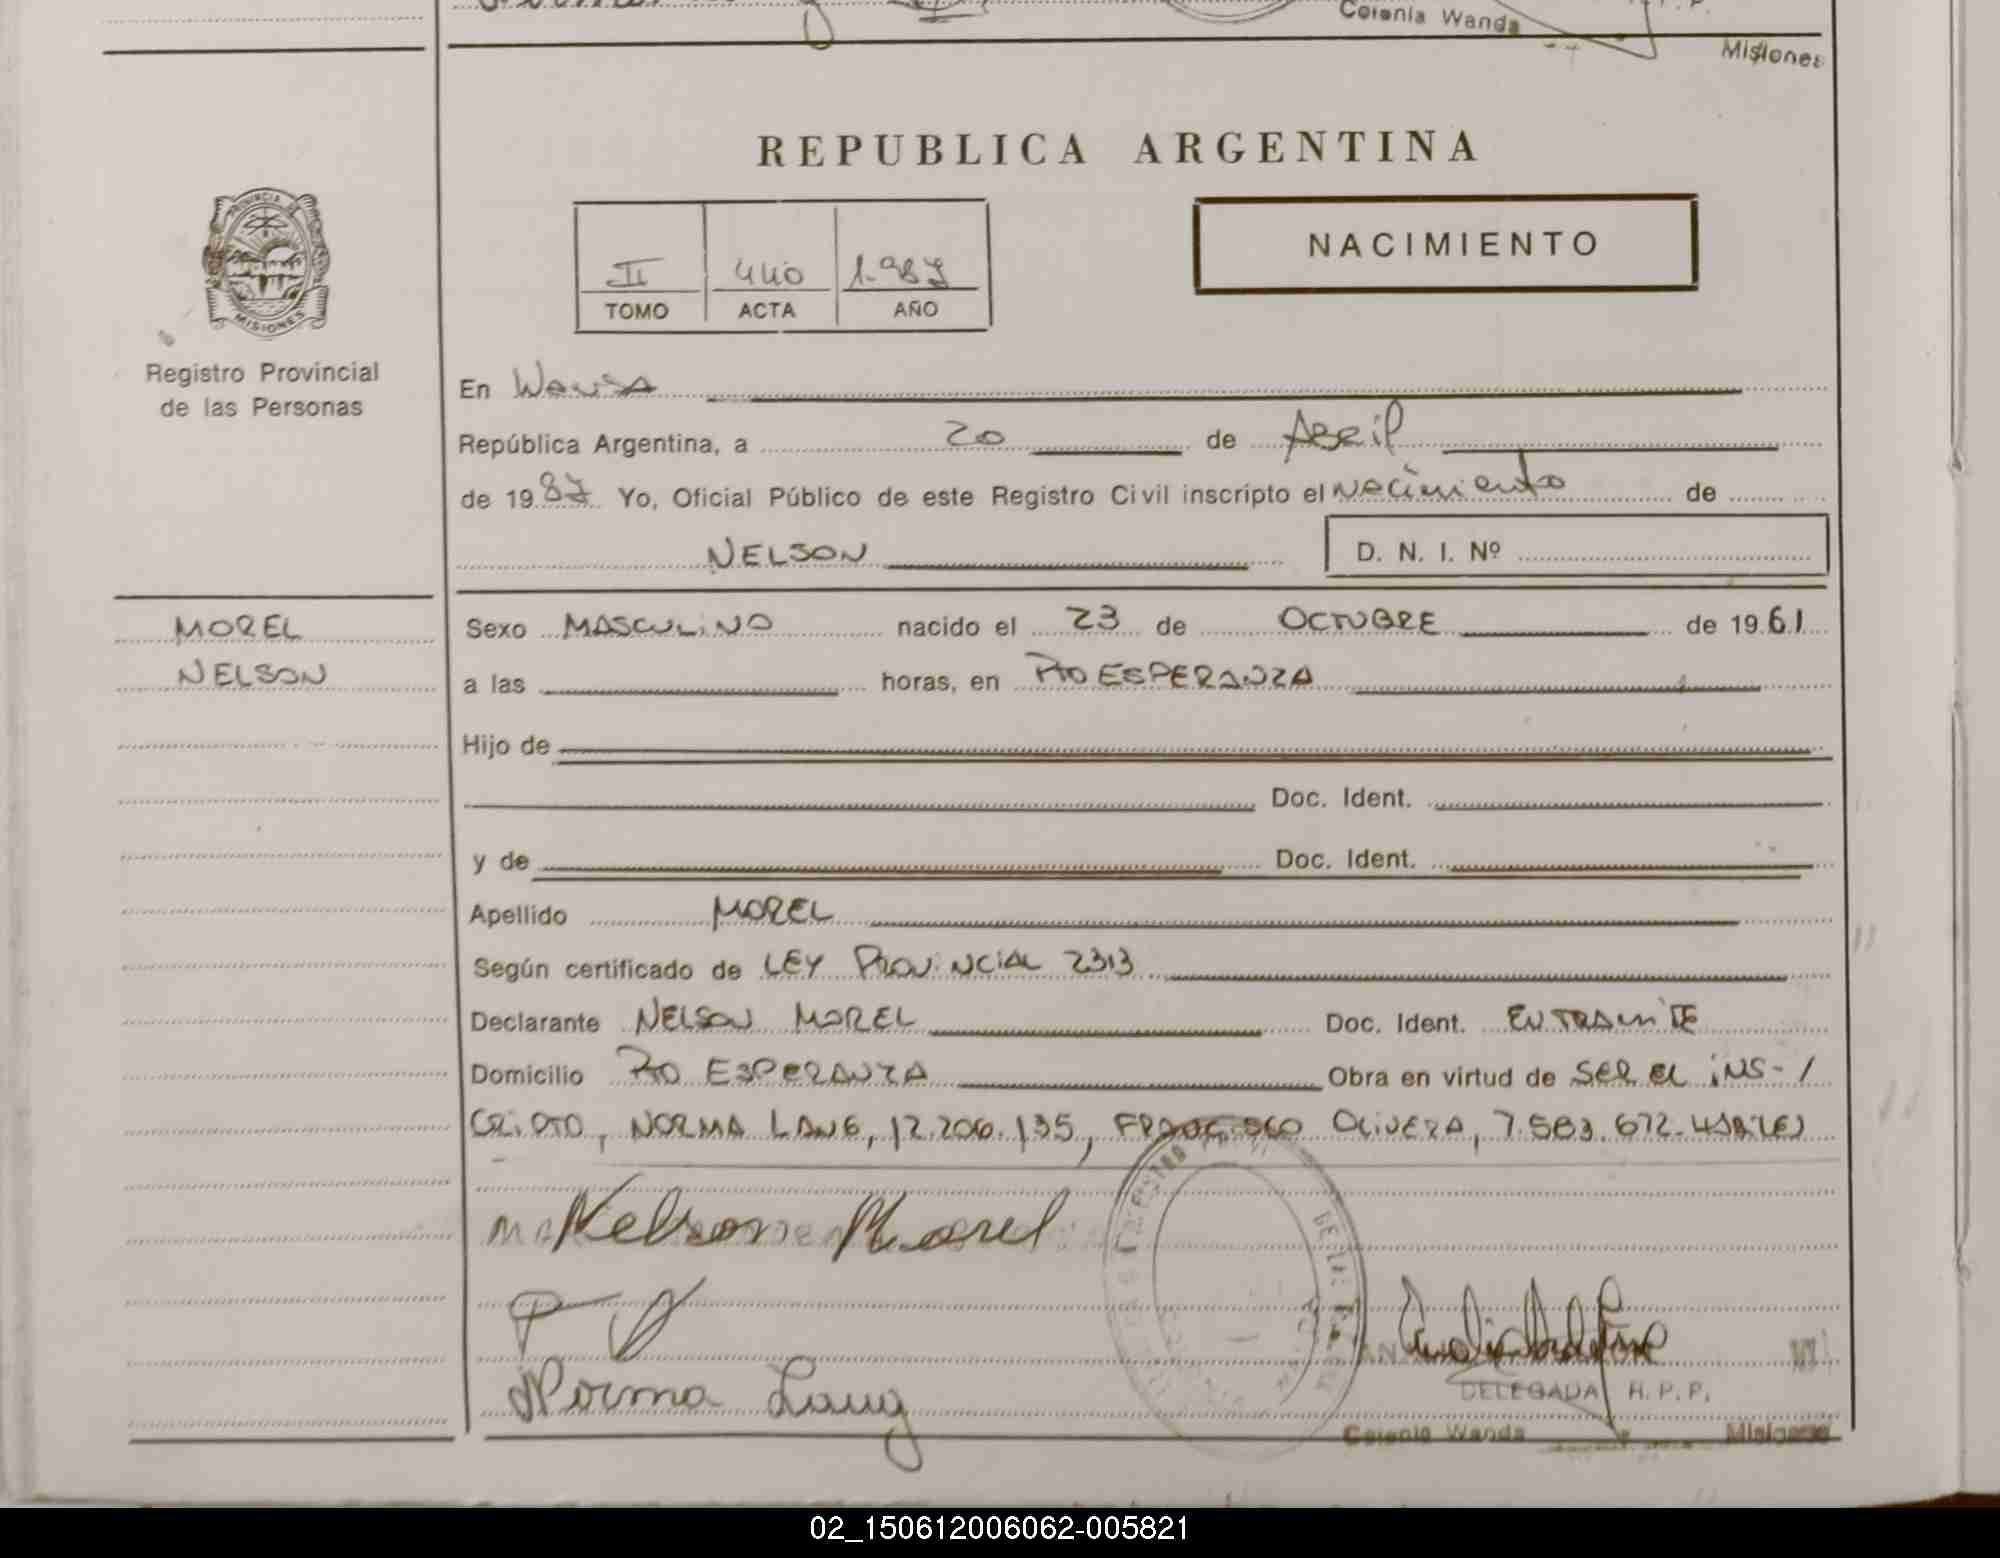 Colonia Wanda
Misiones
REPUBLICA ARGENTINA
PROVINCIA DE
MISIONES
II 440 1.987
TOMO ACTA AÑO
NACIMIENTO
Registro Provincial
de las Personas
En Wanda
República Argentina, a 20 de Abril
de 1987 Yo, Oficial Público de este Registro Civil inscripto el Nacimiento de
NELSON D. N. I. Nº
MOREL
NELSON
Sexo MASCULINO nacido el 23 de OCTUBRE de 1961
a las horas, en Pto ESPERANZA
Hijo de
Doc. Ident.
y de Doc. Ident.
Apellido MOREL
Según certificado de LEY PROVINCIAL 2313
Declarante NELSON MOREL Doc. Ident. EN TRAMITE
Domicilio Pto ESPERANZA Obra en virtud de SER EL INS- /
CRIPTO, NORMA LANG, 12.206.135, FRANCISCO OLIVERA, 7.583.672
Nelson Morel
Norma Lang
DELEGADA R. P. P.
Colonia Wanda Misiones
02_150612006062-005821